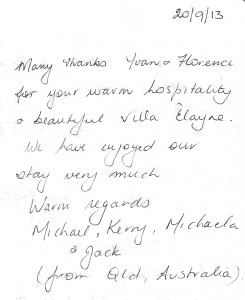 20/9/13
Many thanks Yvan & Florence
for your warm hospitality
& beautiful Villa Élayne.
We have enjoyed our
stay very much
Warm regards
Michael, Kerry, Michaela
& Jack
(from Qld, Australia).